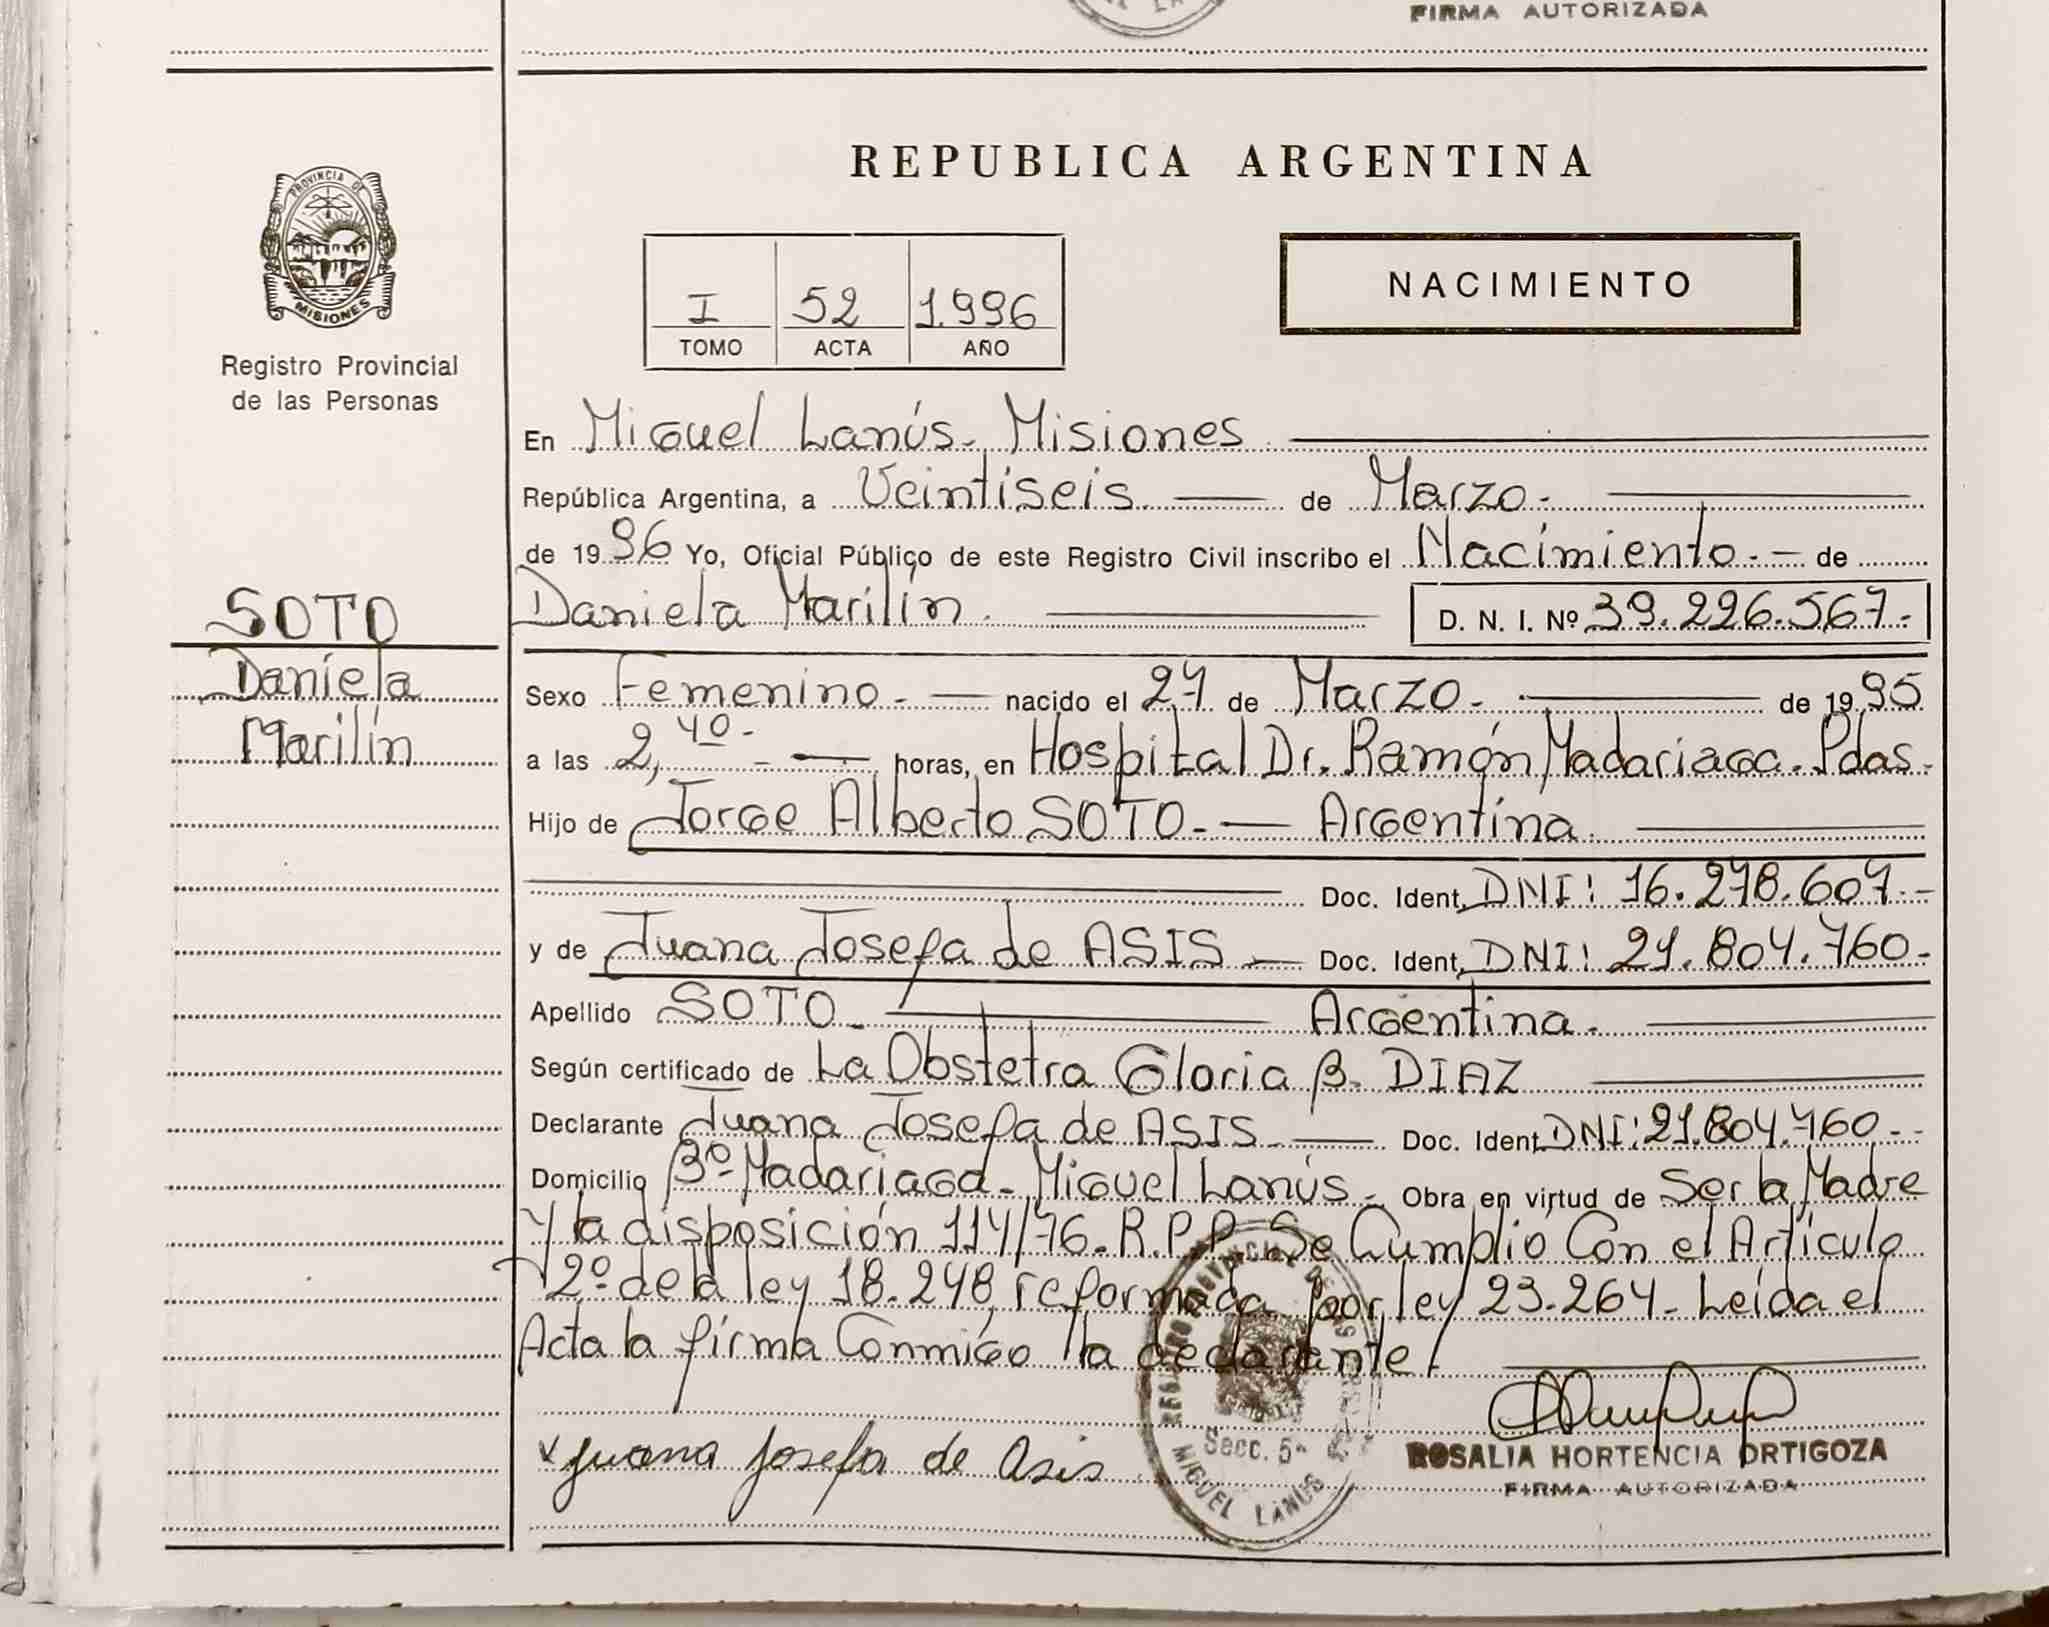 FIRMA AUTORIZADA
PROVINCIA DE
MISIONES
Registro Provincial
de las Personas
REPUBLICA ARGENTINA
I 52 1.996
TOMO ACTA AÑO
NACIMIENTO
En Miguel Lanús. Misiones
República Argentina, a Veintiseis. de Marzo.
de 1996 Yo, Oficial Público de este Registro Civil inscribo el Nacimiento. de
SOTO
Daniela
Marilín
Daniela Marilín. D. N. I. Nº 39.226.567.
Sexo Femenino. nacido el 27 de Marzo. de 1995
a las 2,40 horas, en Hospital Dr. Ramón Madariaga. Pdas.
Hijo de Jorge Alberto SOTO. Argentina.
Doc. Ident. DNI: 16.278.607.
y de Juana Josefa de ASIS Doc. Ident. DNI: 21.804.760.
Apellido SOTO Argentina.
Según certificado de La Obstetra Gloria B. DIAZ
Declarante Juana Josefa de ASIS Doc. Ident. DNI: 21.804.760.
Domicilio Bº Madariaga. Miguel Lanús. Obra en virtud de Ser la Madre
y la disposición 114/76. R.P.P. Se Cumplió Con el Artículo
2º de la ley 18.248, reformada por ley 23.264. Leída el
Acta la firma Conmigo la declarante.
x Juana Josefa de Asis
Secc. 5ª
MIGUEL LANUS
ROSALIA HORTENCIA ORTIGOZA
FIRMA AUTORIZADA